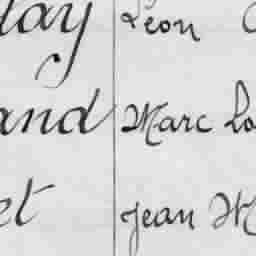 lay Léon
and Marc Lo
et Jean M